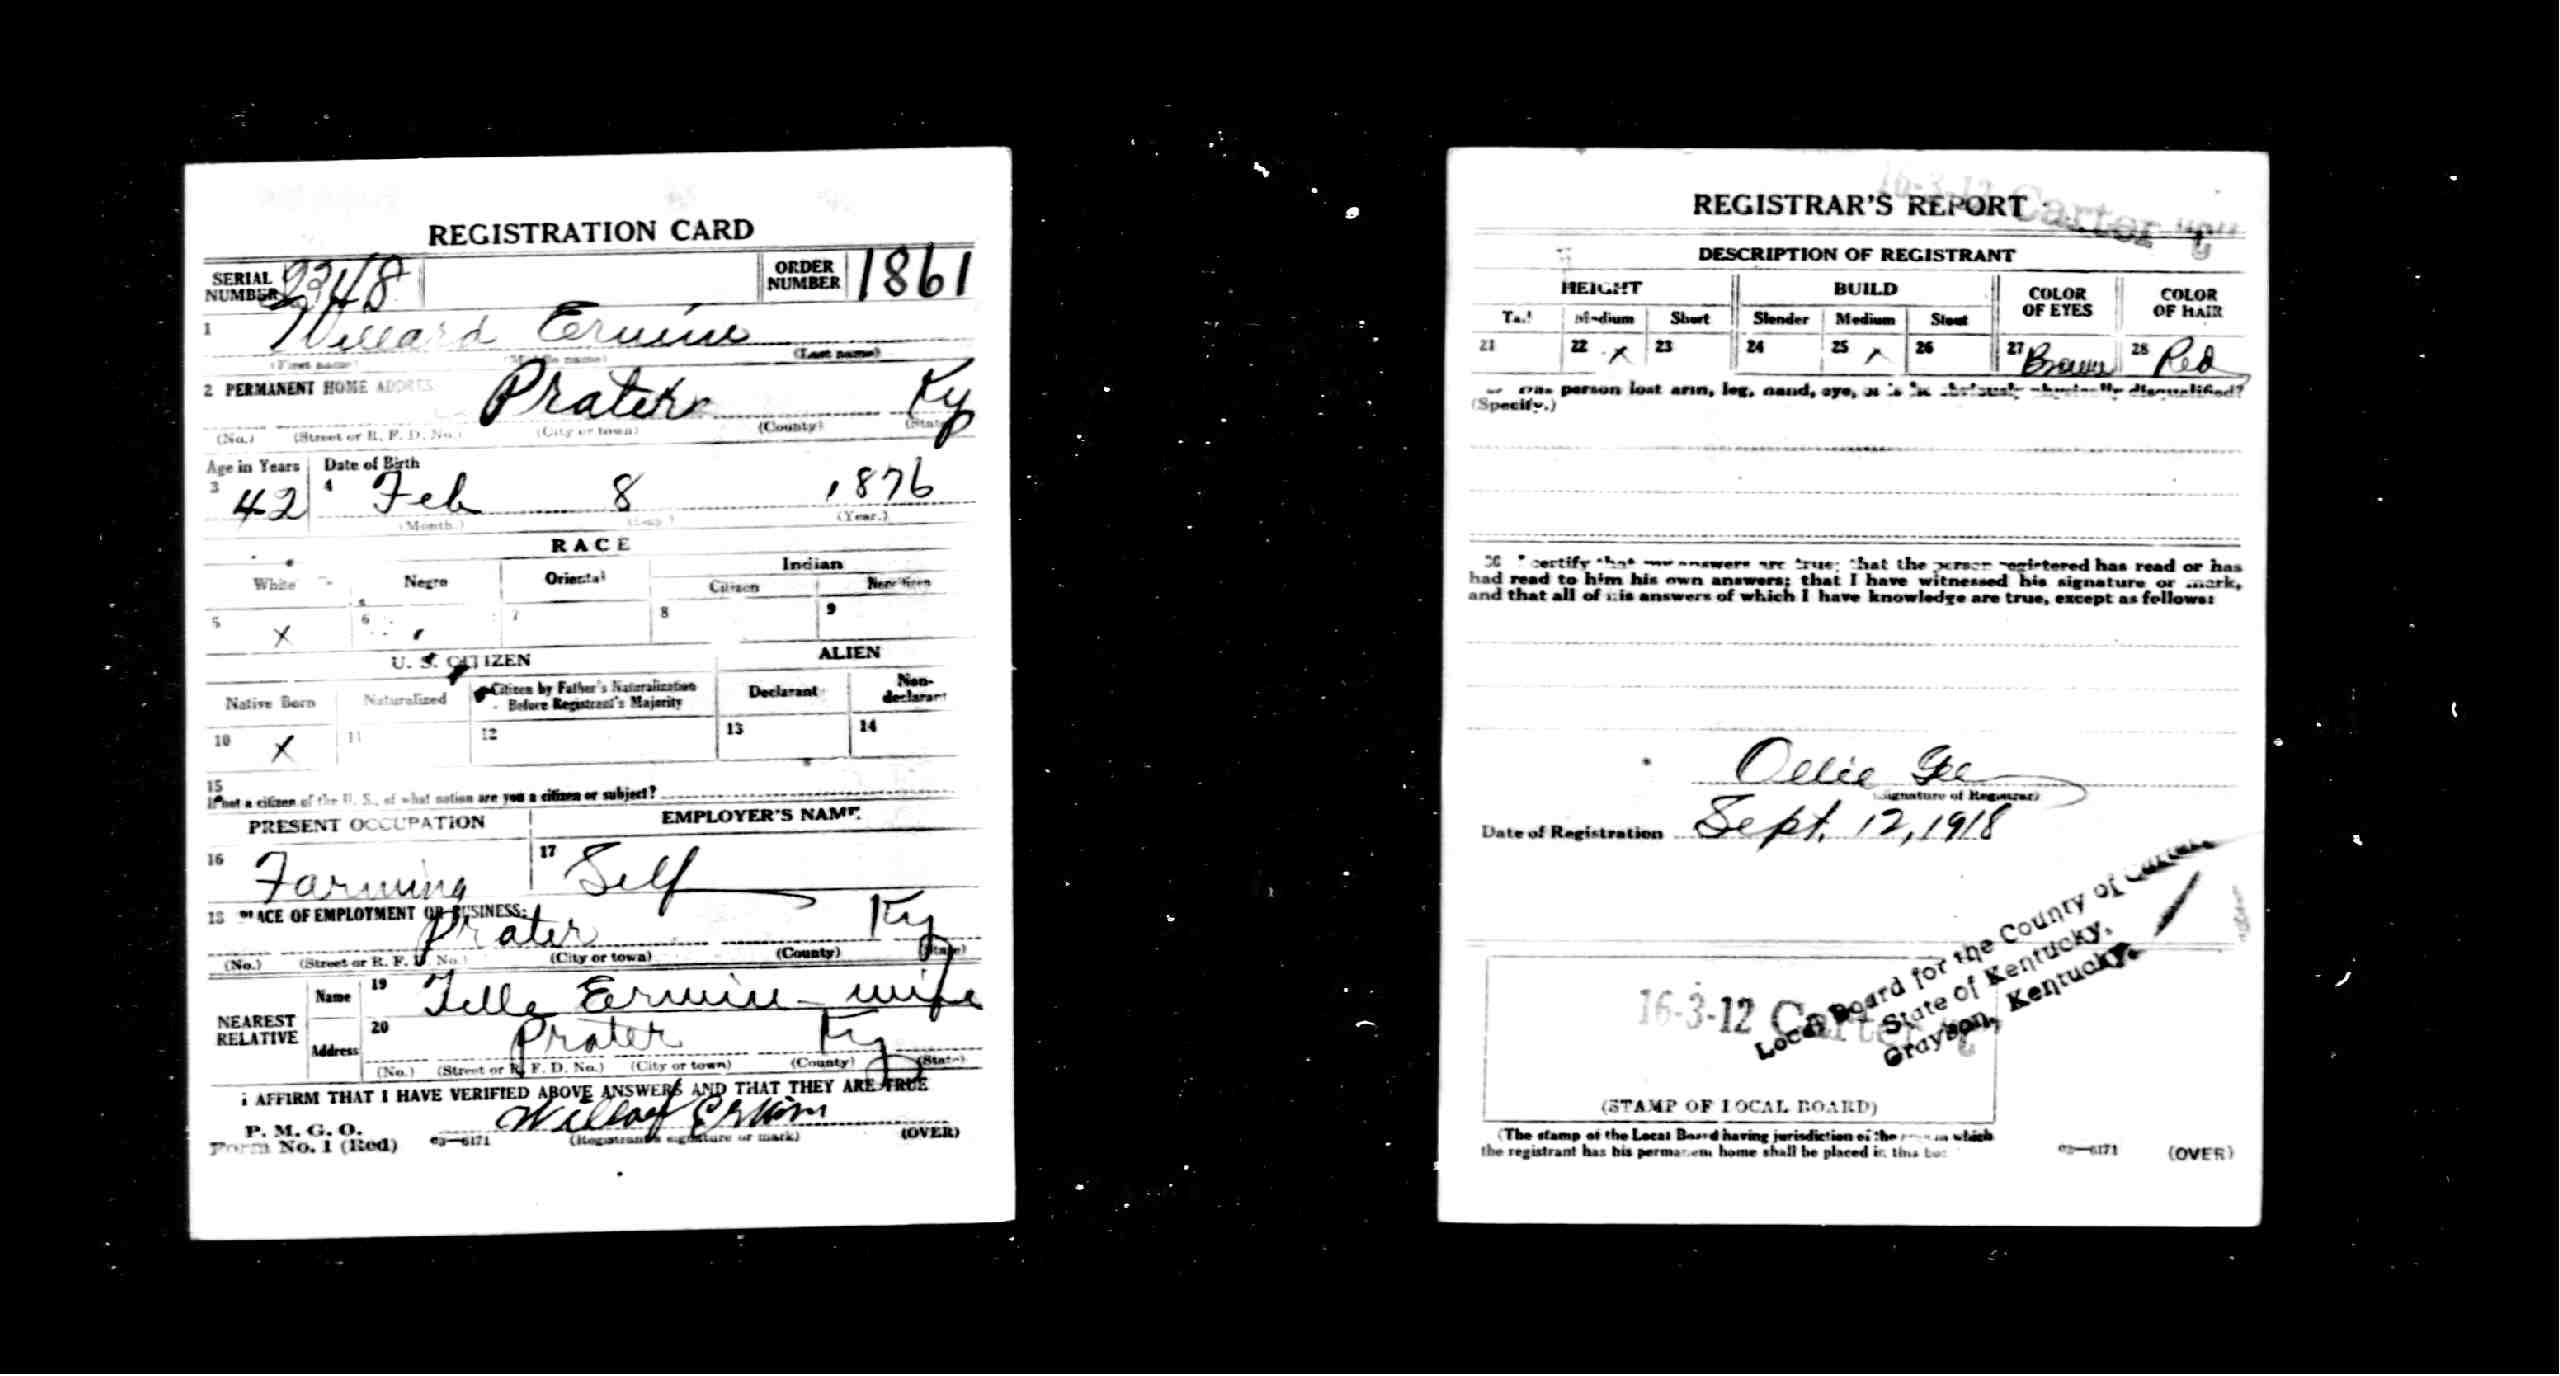 REGISTRATION CARD
SERIAL NUMBER 2348 ORDER NUMBER 1861
1 Willard Erwin
(First name) (Middle name) (Last name)
2 PERMANENT HOME ADDRESS Prater Ky
(No.) (Street or R. F. D. No.) (City or town) (County) (State)
Age in Years Date of Birth
3 42 4 Feb 8 1876
(Month.) (Day.) (Year.)
RACE
White Negro Oriental Indian
Citizen Noncitizen
5 X 6 7 8 9
U. S. CITIZEN ALIEN
Native Born Naturalized Citizen by Father's Naturalization Before Registrant's Majority Declarant Non-declarant
10 X 11 12 13 14
15
If not a citizen of the U. S., of what nation are you a citizen or subject?
PRESENT OCCUPATION EMPLOYER'S NAME
16 Farming 17 Self
18 PLACE OF EMPLOYMENT OR BUSINESS:
Prater Ky
(No.) (Street or R. F. D. No.) (City or town) (County) (State)
NEAREST RELATIVE Name 19 Erwin - wife
Address 20 Prater Ky
(No.) (Street or R. F. D. No.) (City or town) (County) (State)
I AFFIRM THAT I HAVE VERIFIED ABOVE ANSWERS AND THAT THEY ARE TRUE
P. M. G. O.
Form No. 1 (Red) 03—6171 (Registrant's signature or mark) (OVER)
16-3-12 Carter Ky
REGISTRAR'S REPORT
DESCRIPTION OF REGISTRANT
HEIGHT BUILD COLOR OF EYES COLOR OF HAIR
Tall Medium Short Slender Medium Stout
21 22 X 23 24 25 X 26 27 Brown 28 Red
person lost arm, leg, hand, eye, or is he obviously physically disqualified?
(Specify.)
30 I certify that my answers are true; that the person registered has read or has
had read to him his own answers; that I have witnessed his signature or mark,
and that all of his answers of which I have knowledge are true, except as follows:
Ollie Gee
(Signature of Registrar)
Date of Registration Sept. 12, 1918
Local Board for the County of Carter
State of Kentucky,
Grayson, Kentucky.
16-3-12 Carter
(STAMP OF LOCAL BOARD)
(The stamp of the Local Board having jurisdiction of the area in which
the registrant has his permanent home shall be placed in this box
03—6171 (OVER)